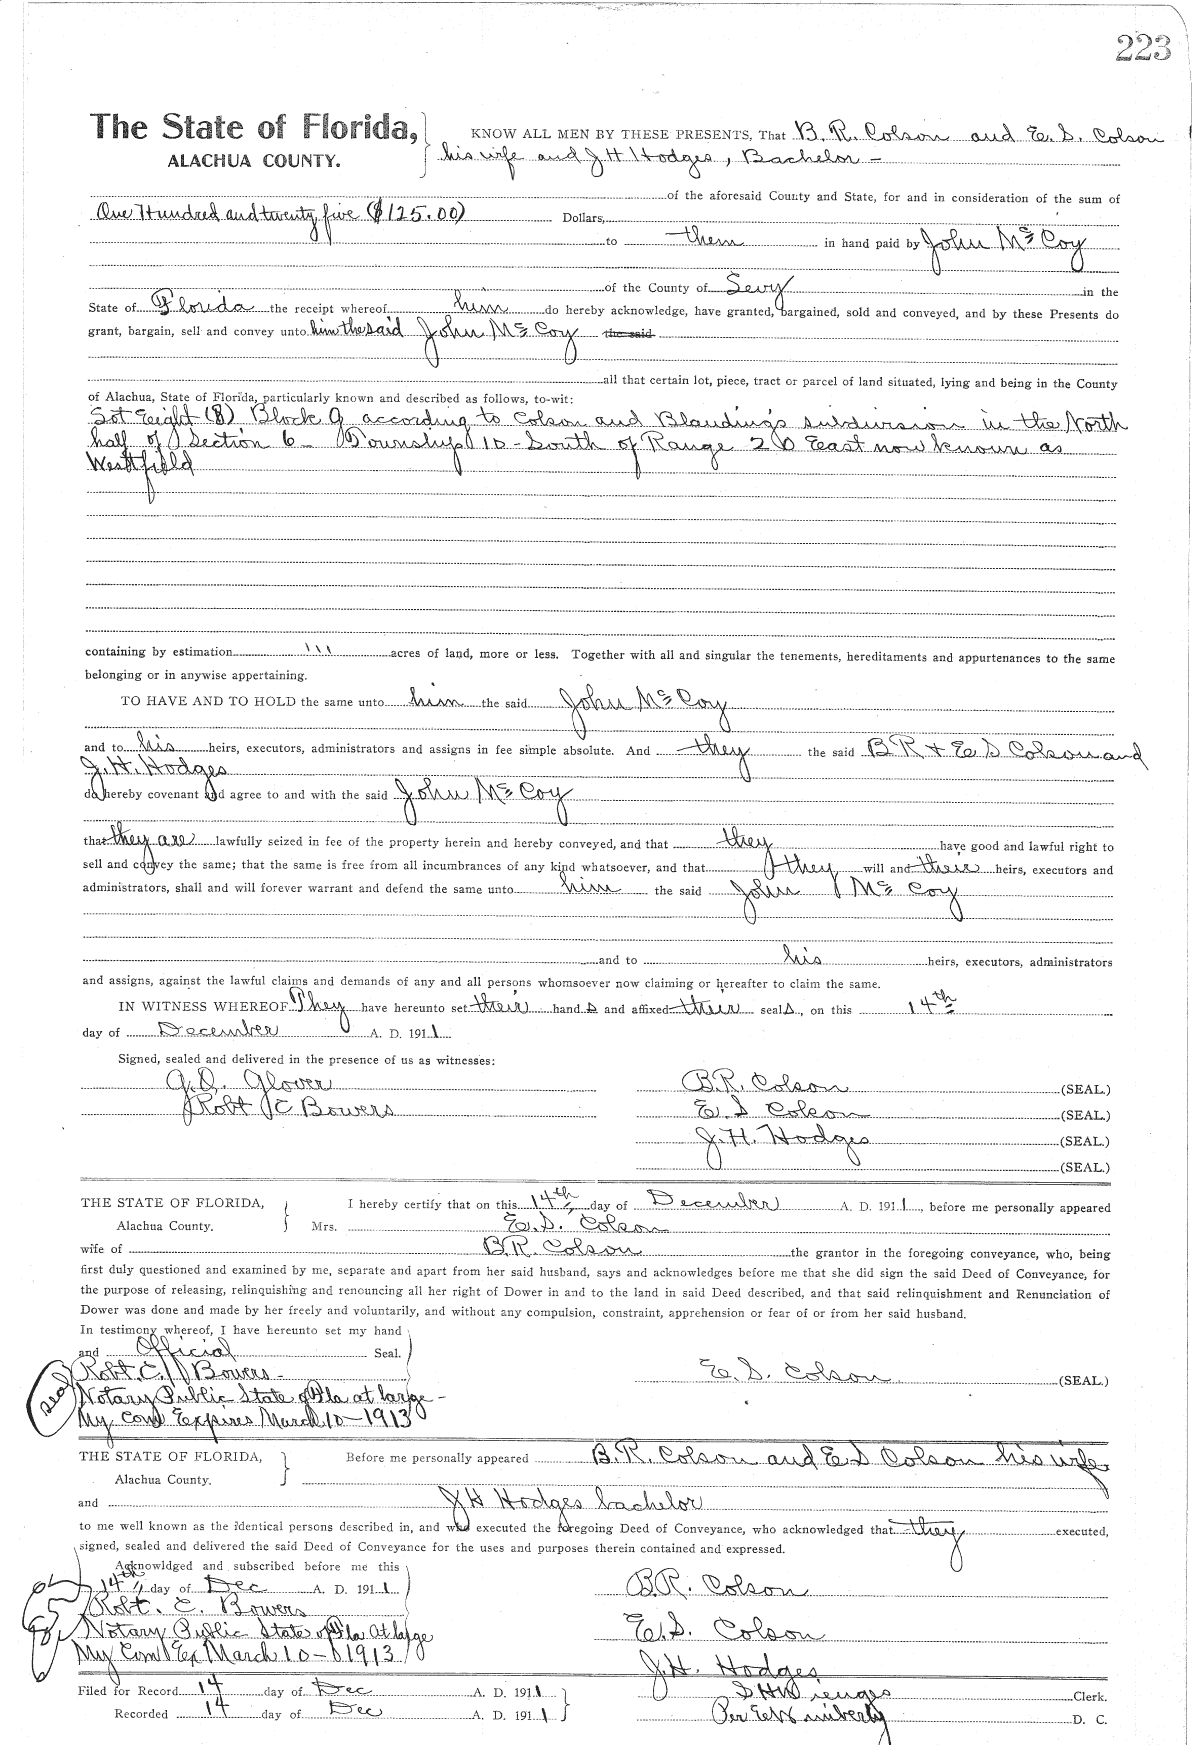 223
The State of Florida, KNOW ALL MEN BY THESE PRESENTS, That B. R. Colson and E. S. Colson
ALACHUA COUNTY. his wife and J H Hodges, Bachelor -
of the aforesaid County and State, for and in consideration of the sum of
One Hundred and twenty five ($125.00) Dollars,
to them in hand paid by John McCoy
of the County of in the
State of Florida the receipt whereof him do hereby acknowledge, have granted, bargained, sold and conveyed, and by these Presents do
grant, bargain, sell and convey unto him the said John McCoy the said
all that certain lot, piece, tract or parcel of land situated, lying and being in the County
of Alachua, State of Florida, particularly known and described as follows, to-wit:
Lot Eight (8) Block 9 according to Colson and Blanding's subdivision in the North
half of Section 6 - Township 10 - South of Range 20 East now known as
Westfield
containing by estimation ''' acres of land, more or less. Together with all and singular the tenements, hereditaments and appurtenances to the same
belonging or in anywise appertaining.
TO HAVE AND TO HOLD the same unto him the said John McCoy
and to his heirs, executors, administrators and assigns in fee simple absolute. And they the said B R & E S Colson and
J. H. Hodges
do hereby covenant and agree to and with the said John McCoy
that they are lawfully seized in fee of the property herein and hereby conveyed, and that they have good and lawful right to
sell and convey the same; that the same is free from all incumbrances of any kind whatsoever, and that they will and their heirs, executors and
administrators, shall and will forever warrant and defend the same unto him the said John McCoy
and to his heirs, executors, administrators
and assigns, against the lawful claims and demands of any and all persons whomsoever now claiming or hereafter to claim the same.
IN WITNESS WHEREOF They have hereunto set their hands and affixed their seals, on this 14th
day of December A. D. 1911
Signed, sealed and delivered in the presence of us as witnesses:
Glover B.R. Colson (SEAL.)
Robt C Bowers E S Colson (SEAL.)
J. H. Hodges (SEAL.)
(SEAL.)
THE STATE OF FLORIDA, I hereby certify that on this 14th day of December A. D. 1911, before me personally appeared
Alachua County. Mrs. E. S. Colson
wife of B.R. Colson the grantor in the foregoing conveyance, who, being
first duly questioned and examined by me, separate and apart from her said husband, says and acknowledges before me that she did sign the said Deed of Conveyance, for
the purpose of releasing, relinquishing and renouncing all her right of Dower in and to the land in said Deed described, and that said relinquishment and Renunciation of
Dower was done and made by her freely and voluntarily, and without any compulsion, constraint, apprehension or fear of or from her said husband.
In testimony whereof, I have hereunto set my hand
and Official Seal.
Robt. C. Bowers - E. S. Colson (SEAL.)
Seal Notary Public State of Fla at large -
My Com Expires March 10 - 1913
THE STATE OF FLORIDA, Before me personally appeared B.R. Colson and E S Colson his wife
Alachua County.
and J H Hodges bachelor
to me well known as the identical persons described in, and who executed the foregoing Deed of Conveyance, who acknowledged that they executed,
signed, sealed and delivered the said Deed of Conveyance for the uses and purposes therein contained and expressed.
Acknowldged and subscribed before me this
14th day of Dec A. D. 1911 B.R. Colson
Robt. C. Bowers
Notary Public State of Fla At large E.S. Colson
My Com Ex March 10 - 1913 J. H. Hodges
Filed for Record 14 day of Dec A. D. 1911 Clerk.
Recorded 14 day of Dec A. D. 1911 Per D. C.